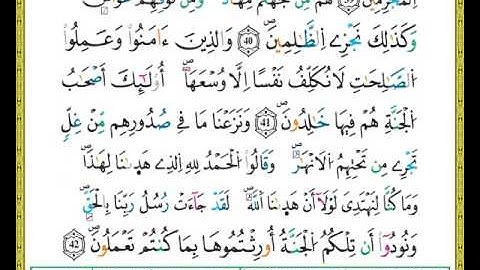 اَ۬لْمُجْرِمِينَ ۖ 39 لَهُم مِّن جَهَنَّمَ مِهَادٞ وَمِن فَوْقِهِمْ غَوَاشٖۖ
وَكَذَٰلِكَ نَجْزِے اِ۬لظَّٰلِمِينَۖ 40 وَالذِينَ ءَامَنُواْ وَعَمِلُواْ
اُ۬لصَّٰلِحَٰتِ لَا نُكَلِّفُ نَفْساً اِلَّا وُسْعَهَآ أُوْلَٰٓئِكَ أَصْحَٰبُ
اُ۬لْجَنَّةِ هُمْ فِيهَا خَٰلِدُونَۖ 41 وَنَزَعْنَا مَا فِے صُدُورِهِم مِّنْ غِلّٖ
تَجْرِے مِن تَحْتِهِمُ اُ۬لَانْهَٰرُۖ وَقَالُواْ اُ۬لْحَمْدُ لِلهِ اِ۬لذِے هَد۪ىٰنَا لِهَٰذَاۖ
وَمَا كُنَّا لِنَهْتَدِيَ لَوْلَآ أَنْ هَد۪ىٰنَا اَ۬للَّهُۖ لَقَدْ جَآءَتْ رُسُلُ رَبِّنَا بِالْحَقِّۖ
وَنُودُوٓاْ أَن تِلْكُمُ اُ۬لْجَنَّةُ أُورِثْتُمُوهَا بِمَا كُنتُمْ تَعْمَلُونَۖ 42